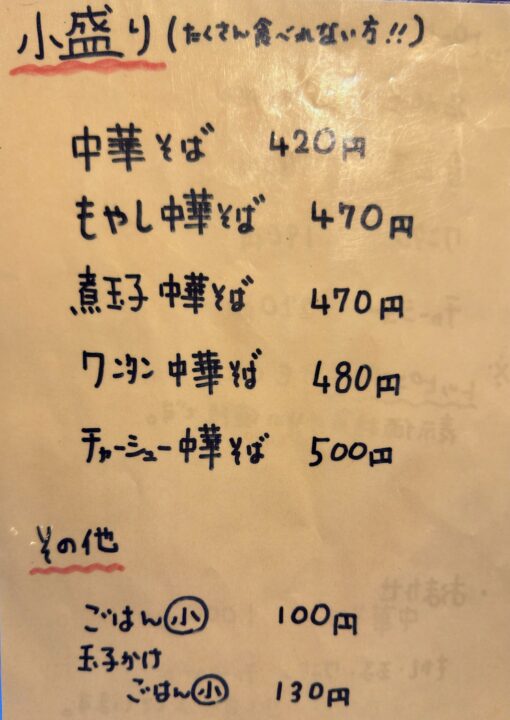 小盛り(たくさん食べれない方!!)
中華そば 420円
もやし中華そば 470円
煮玉子 中華そば 470円
ワンタン 中華そば 480円
チャーシュー中華そば 500円
その他
ごはん小 100円
玉子かけ
ごはん小 130円